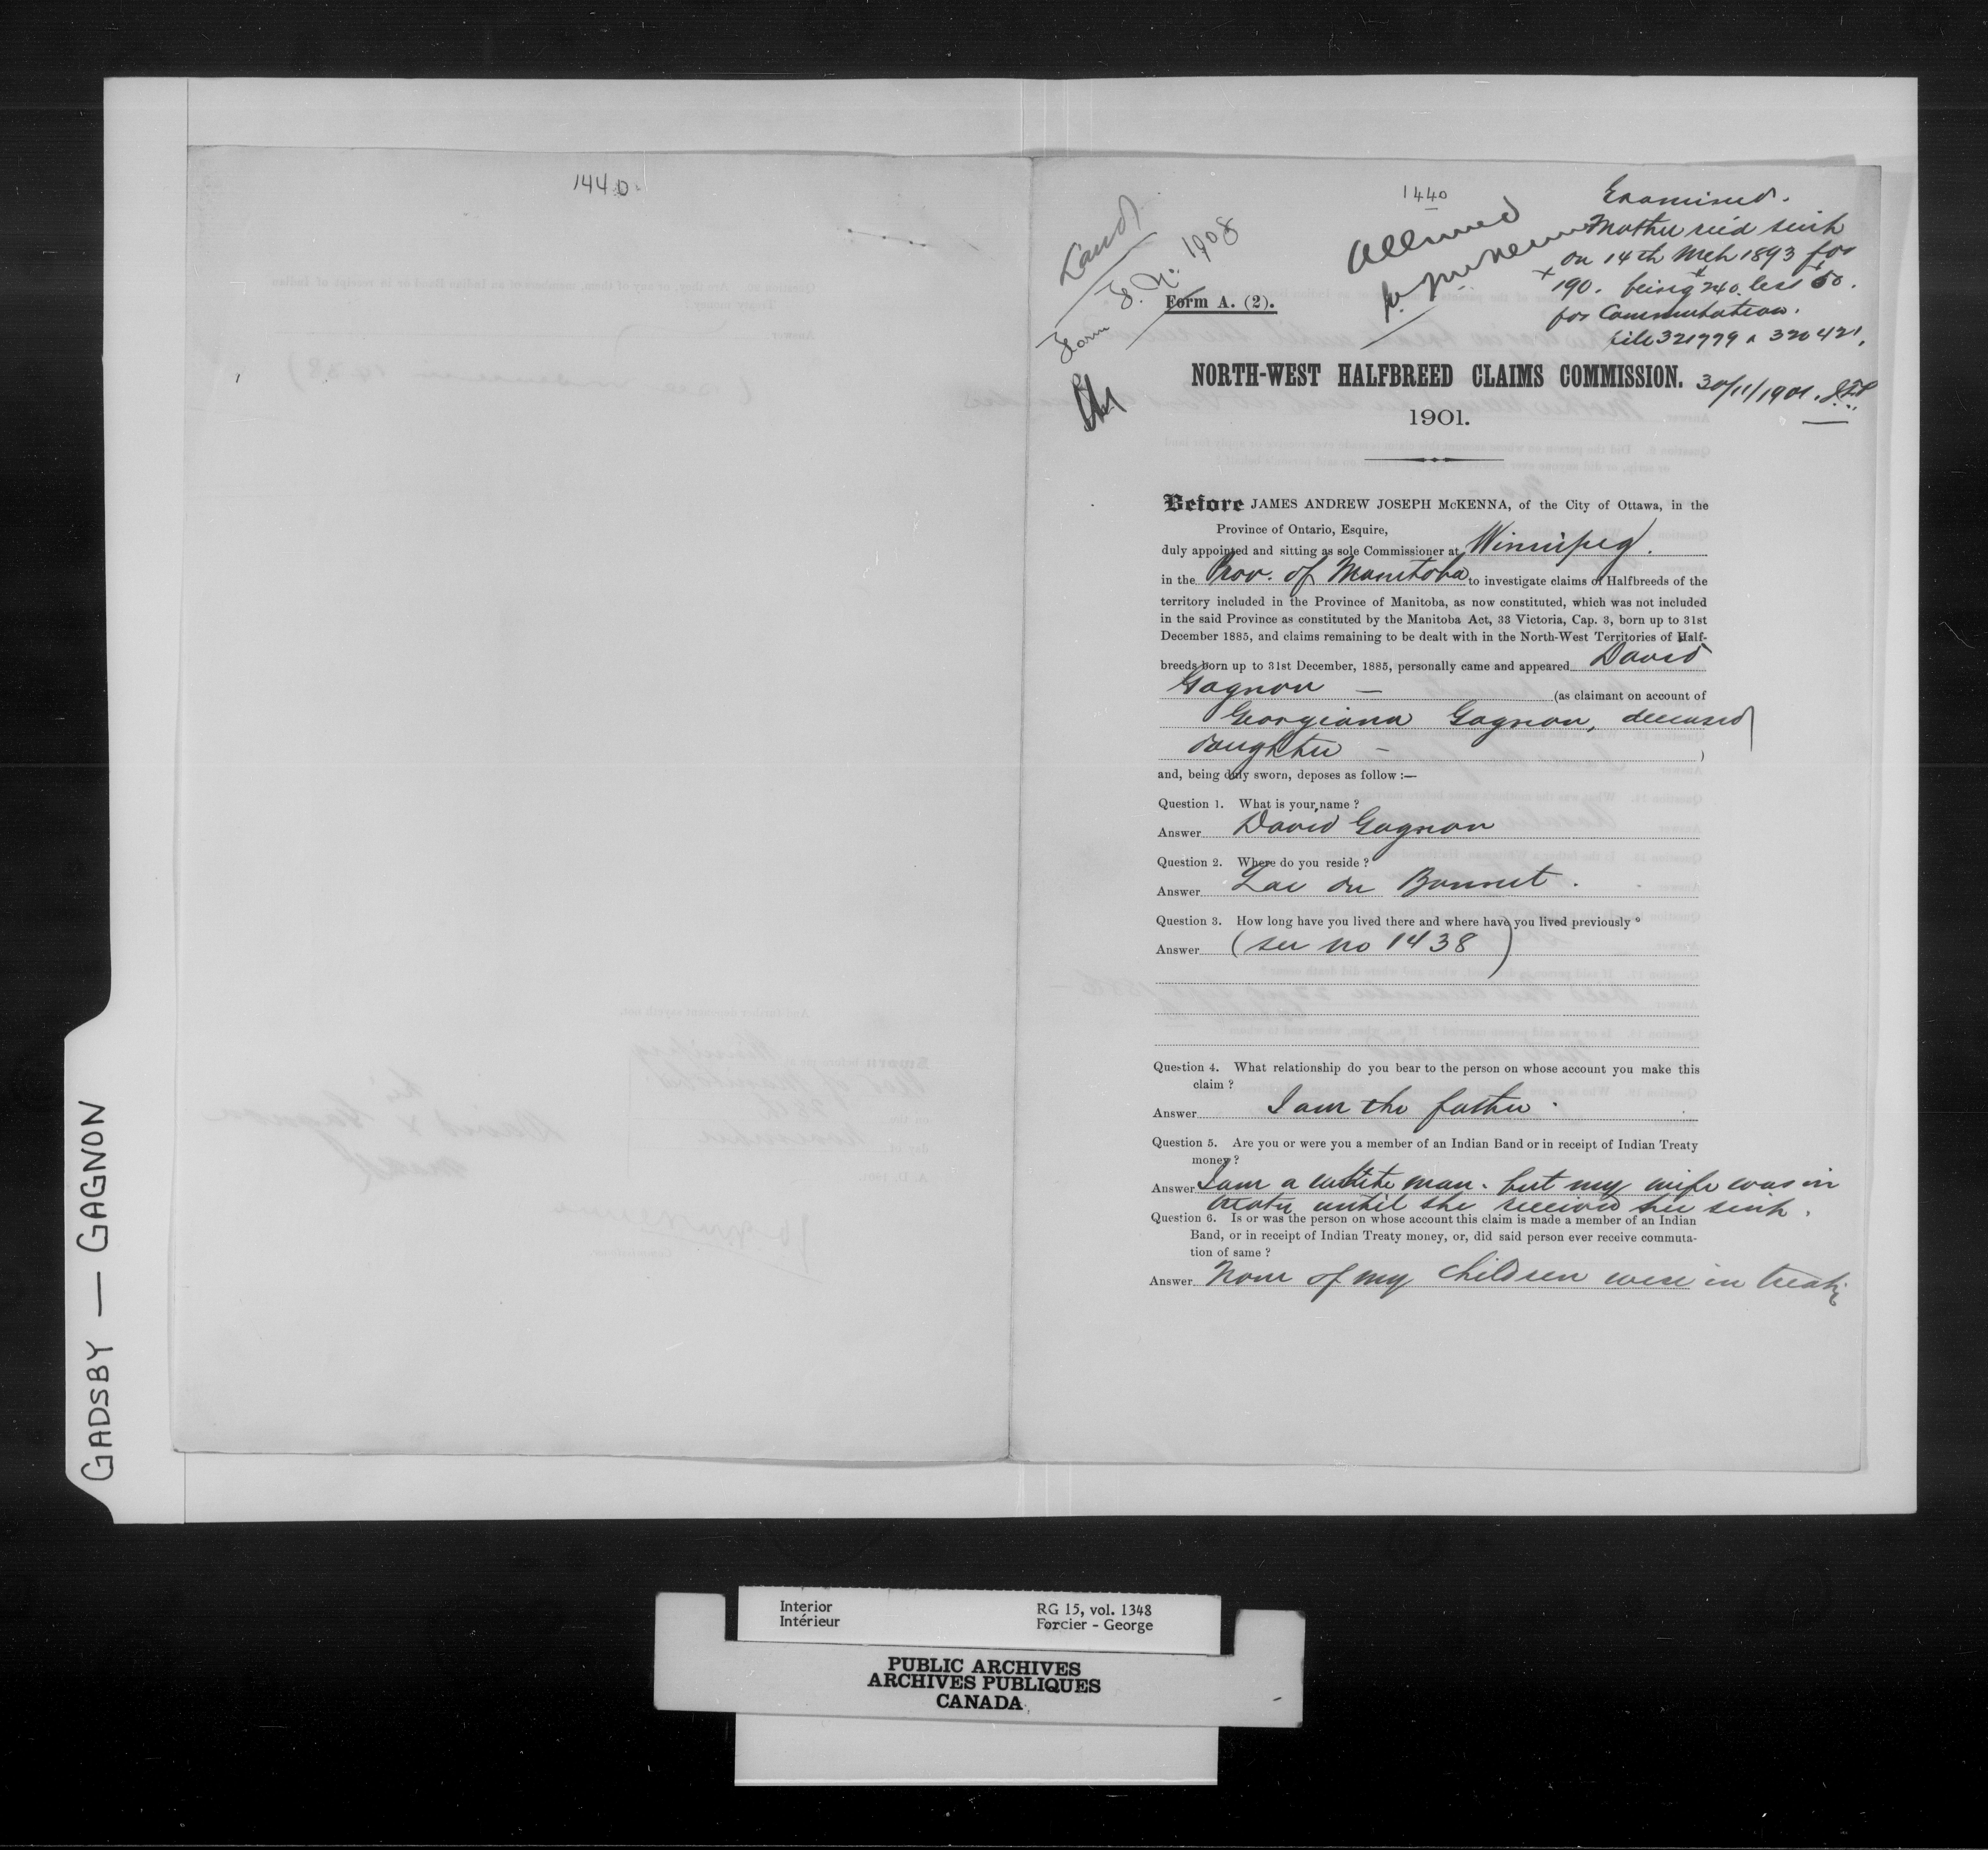 1440
1440
Land
Form F. No. 1908
Form A. (2).
Allowed
Examined.
Mother rec'd scrip
on 14th Mch 1893 for
190. being 240. less 50.
for Commutation.
file 321779 & 320421.
NORTH-WEST HALFBREED CLAIMS COMMISSION.
30/11/1901.
1901.
Before JAMES ANDREW JOSEPH McKENNA, of the City of Ottawa, in the
Province of Ontario, Esquire,
duly appointed and sitting as sole Commissioner at Winnipeg.
in the Prov. of Manitoba to investigate claims of Halfbreeds of the
territory included in the Province of Manitoba, as now constituted, which was not included
in the said Province as constituted by the Manitoba Act, 33 Victoria, Cap. 3, born up to 31st
December 1885, and claims remaining to be dealt with in the North-West Territories of Half-
breeds born up to 31st December, 1885, personally came and appeared David
Gagnon — (as claimant on account of
Georgiana Gagnon, deceased
daughter — )
and, being duly sworn, deposes as follow :—
Question 1. What is your name ?
Answer David Gagnon
Question 2. Where do you reside ?
Answer Lac du Bonnet.
Question 3. How long have you lived there and where have you lived previously
Answer (see no 1438)
Question 4. What relationship do you bear to the person on whose account you make this
claim ?
Answer I am the father.
Question 5. Are you or were you a member of an Indian Band or in receipt of Indian Treaty
money ?
Answer I am a white man. but my wife was in
treaty until she received her scrip.
Question 6. Is or was the person on whose account this claim is made a member of an Indian
Band, or in receipt of Indian Treaty money, or, did said person ever receive commuta-
tion of same ?
Answer None of my children were in treaty
GADSBY — GAGNON
Interior
Intérieur
RG 15, vol. 1348
Forcier - George
PUBLIC ARCHIVES
ARCHIVES PUBLIQUES
CANADA